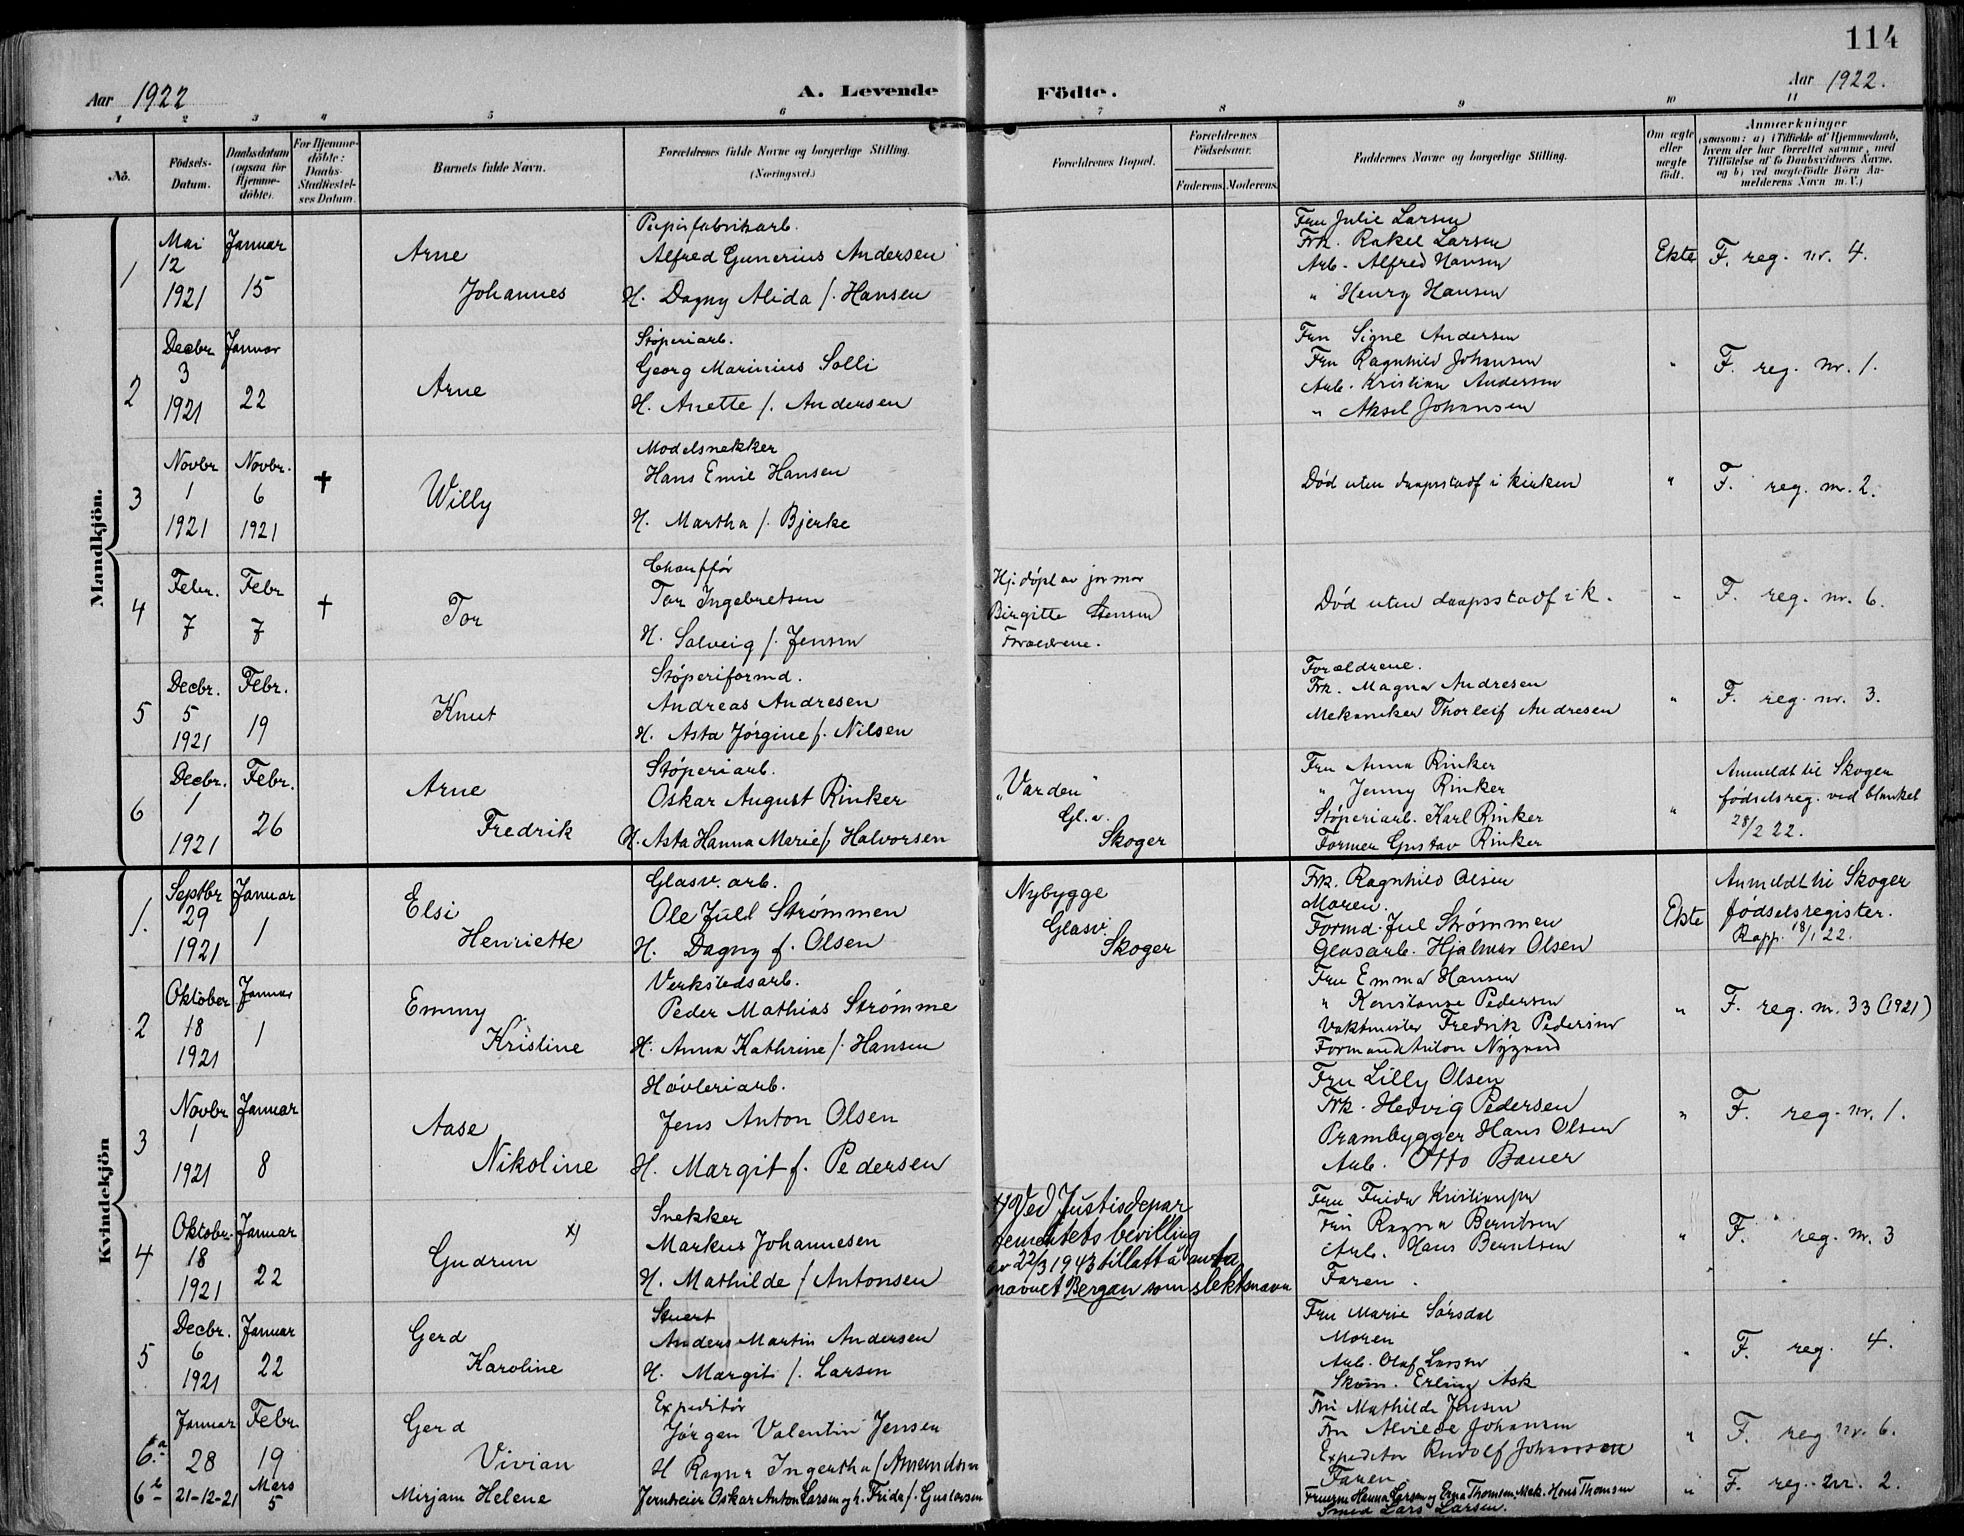 114
Aar 1922
A. Levende
Födte.
Aar 1922.
1 2 3 4 5 6 7 8 9 10 11
No.
Födsels-Datum.
Daabsdatum (ogsaa for Hjemme-döbte).
For Hjemme-döbte: Daabs-Stadfæstel-ses Datum.
Barnets fulde Navn.
Forældrenes fulde Navne og borgerlige Stilling. (Næringsvei.)
Forældrenes Bopæl.
Forældrenes Födselsaar.
Faderens. Moderens.
Faddernes Navne og borgerlige Stilling.
Om ægte eller uægte födt.
Anmærkninger
(saasom: a) i Tilfælde af Hjemmedaab, hvem der har forrettet samme, med Tilföielse af to Daabsvidners Navne, og b) ved uægtefödte Börn An-melderens Navn m. V.)
Mandkjön.
1
Mai 12 1921
Januar 15
Arne Johannes
Papirfabrikarb.
Alfred Gunerius Andersen
H. Dagny Alida f. Hansen
Fru Julie Larsen
Frk. Rakel Larsen
Arb. Alfred Hansen
" Henry Hansen
Ekte
F. reg. nr. 4.
2
Decbr 3 1921
Januar 22
Arne
Støperiarb.
Georg Marinius Solli
H. Anette f. Andersen
Fru Signe Andersen
Fru Ragnhild Johansen
Arb. Kristian Andersen
" Aksel Johansen
"
F. reg. nr. 1.
3
Novbr 1 1921
Novbr. 6 1921
†
Willy
Modelsnekker
Hans Emil Hansen
H. Martha f. Bjerke
Død uten daapsstadf i kirken
"
F. reg. nr. 2.
4
Febr. 7
Febr 7
†
Tor
Chauffør
Tor Ingebretsen
H. Solveig f. Jensen
Hj. døpt av jormor
Birgitte Stensen
Foraeldrene.
Død uten daapsstadf i k.
"
F. reg. nr. 6.
5
Decbr. 5 1921
Febr. 19
Knut
Støperiformd.
Andreas Andresen
H. Asta Jørgine f. Nilsen
Foraeldrene.
Frk. Magna Andresen
Mekaniker Thorleif Andresen
"
F. reg. nr. 3.
6
Decbr. 1 1921
Febr. 26
Arne Fredrik
Støperiarb.
Oskar August Rinker
H. Asta Hanna Marie f. Halvorsen
"Varden"
Gl. v.
Skoger
Fru Anna Rinker
" Jenny Rinker
Støperiarb. Karl Rinker
Former Gustav Rinker
"
Anmeldt til Skoger
fødselsreg. ved blanket
28/2 22.
Kvindekjön
1.
Septbr 29 1921
Januar 1
Elsi Henriette
Glasv. arb.
Ole Jull Strømmen
H. Dagny f. Olsen
Nybygge
Glasv.
Skoger
Frk. Ragnhild Olsen
Moren.
Formd. Jul Strømmen
Glasarb. Hjalmar Olsen
Ekte
Anmeldt til Skoger
fødselsregister.
Rapp. 18/1 22.
2
Oktober 18 1921
Januar 1
Emmy Kristine
Verkstedsarb.
Peder Mathias Strømme
H. Anna Kathrine f. Hansen
Fru Emma Hansen
" Konstanse Pedersen
Vaktmester Fredrik Pedersen
Formand Anton Nygaard
"
F. reg. nr. 33 (1921)
3
Novbr 1 1921
Januar 8
Aase Nikoline
Høvleriarb.
Jens Anton Olsen
H. Margit f. Pedersen
Fru Lilly Olsen
Frk. Hedvig Pedersen
Prambygger Hans Olsen
Arb. Otto Bauer
"
F. reg. nr. 1.
4
Oktobr. 18 1921
Januar 22
Gudrun x)
Snekker
Markus Johannesen
H. Mathilde f Antonsen
x) Ved Justisdepar
tementets bevilling
av 22/3 1943 tillatt å anta
navnet Bergan som slektsnavn
Fru Frida Kristiansen
Fru Ragna Berntsen
Arb. Hans Berntsen
Faren.
"
F. reg. nr. 3
5
Decbr. 6 1921
Januar 22
Gerd Karoline
Stuert
Anders Martin Andersen
H. Margit f. Larsen
Fru Marie Sørsdal
Moren
Arb. Olaf Larsen
Skom. Erling Ask
"
F. reg. 4.
6a
Januar 28
Febr. 19
Gerd Vivian
Expeditør
Jørgen Valentin Jensen
H Ragna Ingertha f Amundsen
Fru Mathilde Jensen
Fru Alvilde Johansen
Expeditør Rudolf Johansen
Faren
"
F. reg. nr. 6.
6b
21-12-21
Mars 5
Mirjam Helene
Jernbeier Oskar Anton Larsen og h. Frida f. Gustavsen
Fruerne Hanna Larsen og Erna Thomsen. Mek. Hans Thomsen
Smed Lars Larsen.
"
F. reg. nr. 2.